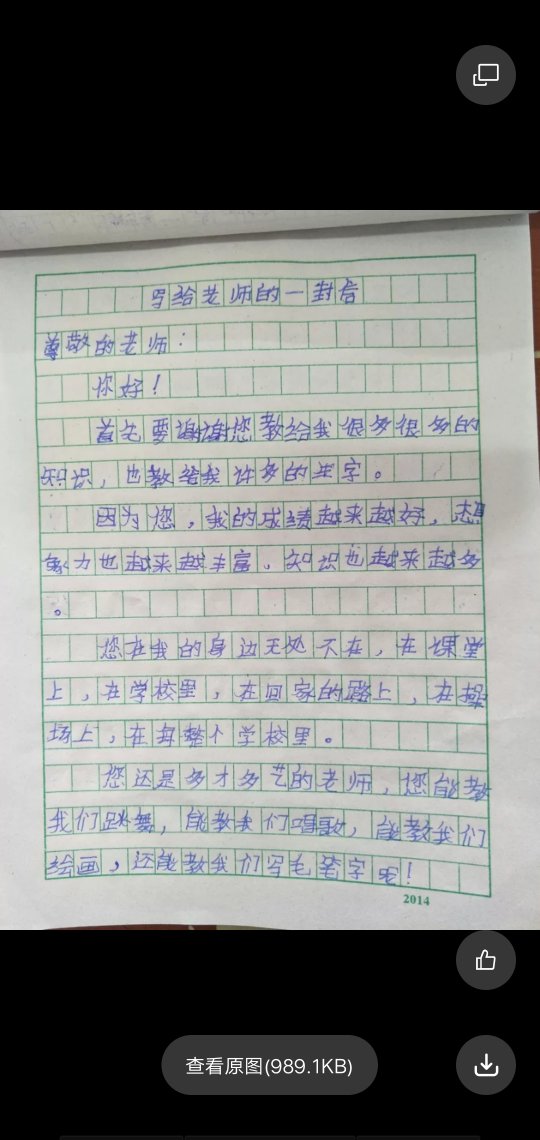 写给老师的一封信
尊敬的老师：
你好！
首先要谢谢您教给我很多很多的
知识，也教给我许多的生字。
因为您，我的成绩越来越好，想
象力也越来越丰富，知识也越来越多
。
您在我的身边无处不在，在课堂
上，在学校里，在回家的路上，在操
场上，在每整个学校里。
您还是多才多艺的老师，您能教
我们跳舞，能教我们唱歌，能教我们
绘画，还能教我们写毛笔字呢！
2014
查看原图(989.1KB)